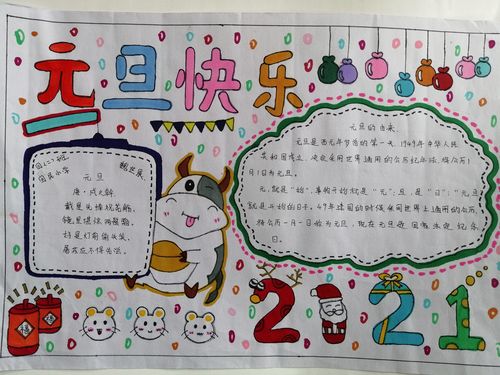 元旦快乐
元旦
戴星先捧祝尧觞,
镜里堪惊两鬓霜。
好是灯前偷失笑,
屠苏应不得先尝。
元旦的由来
元旦是西元年岁首的第一天,1949年中华人民
共和国成立,决定采用世界通用的公历纪年法,将公历
1月1日为元旦。
元,就是"始",事物开始就是"元";旦,是"日";"元旦"
就是开始的日子。49年建国的时候采用世界上通用的公历,
将公历一月一日始为元旦,现在元旦是国家法定纪念
日。
福 福
2 21